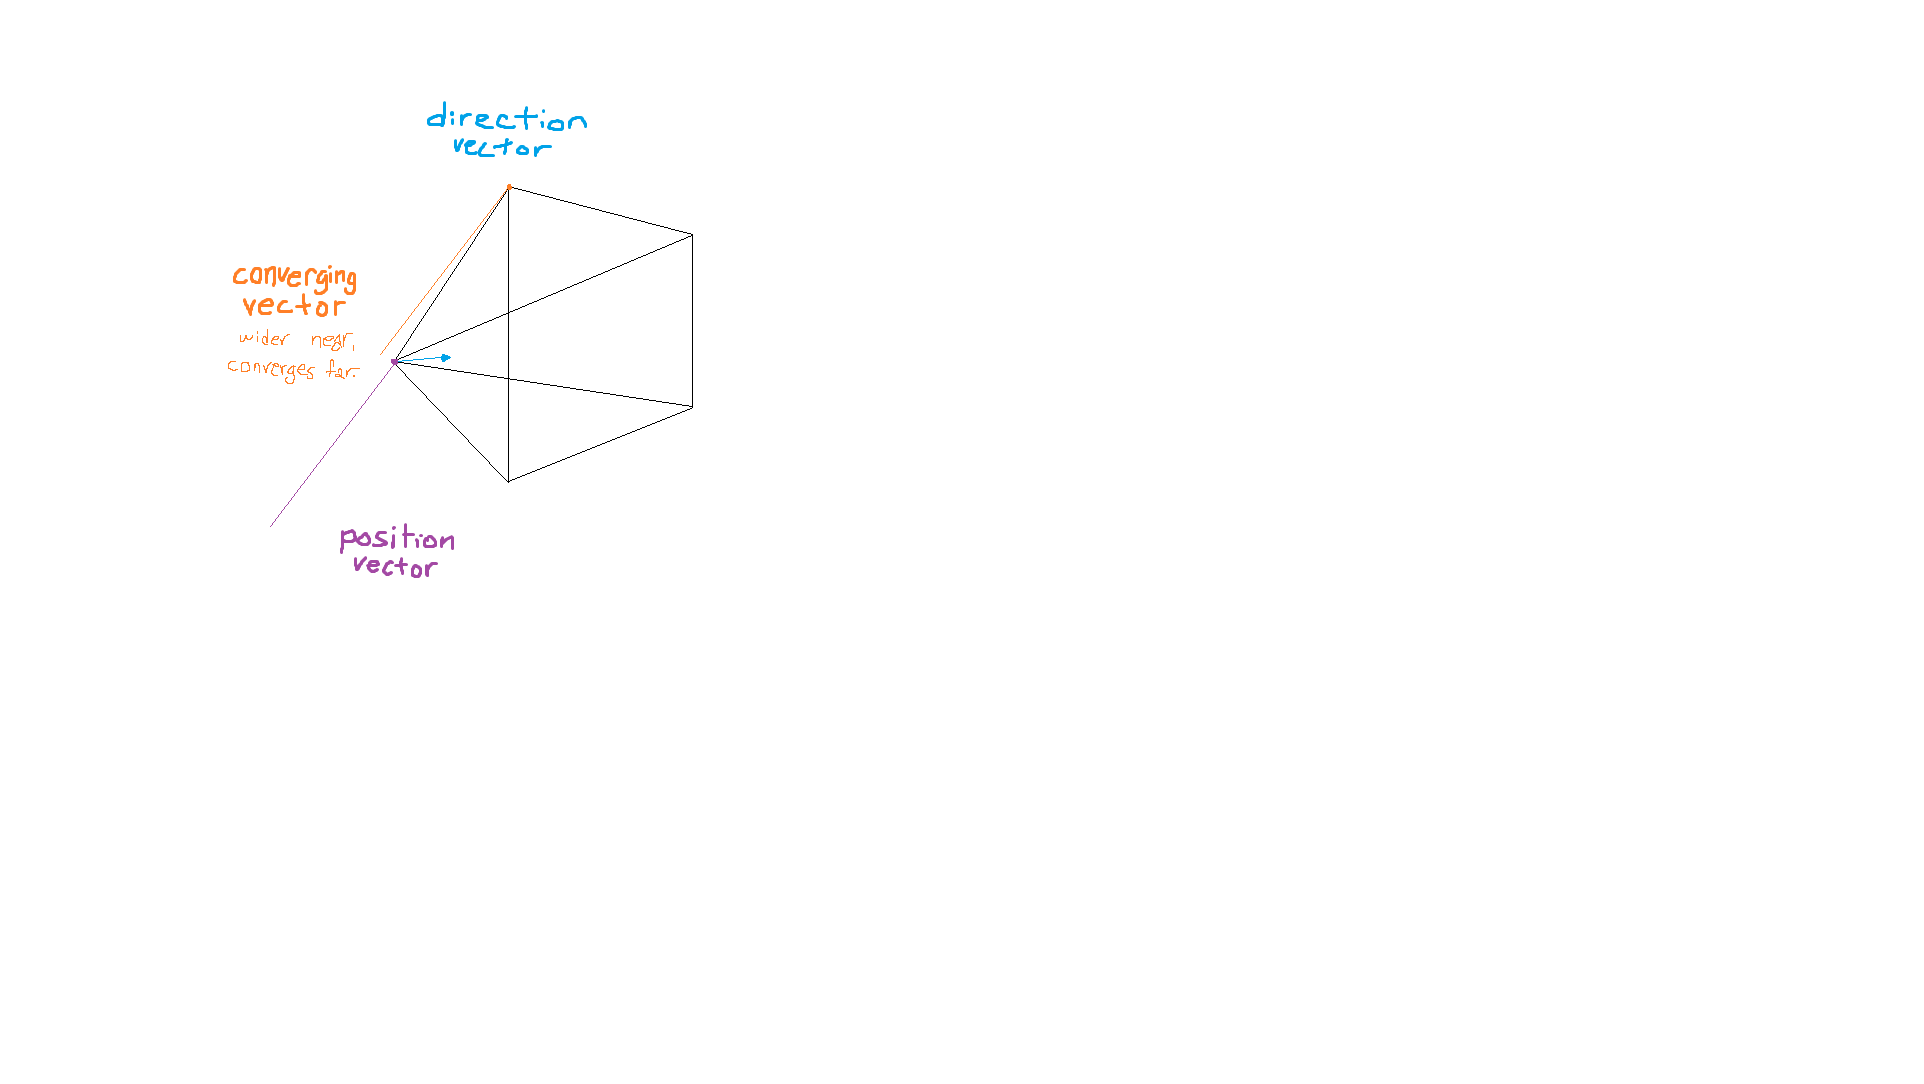 direction
vector
converging
vector
wider near,
converges far.
position
vector